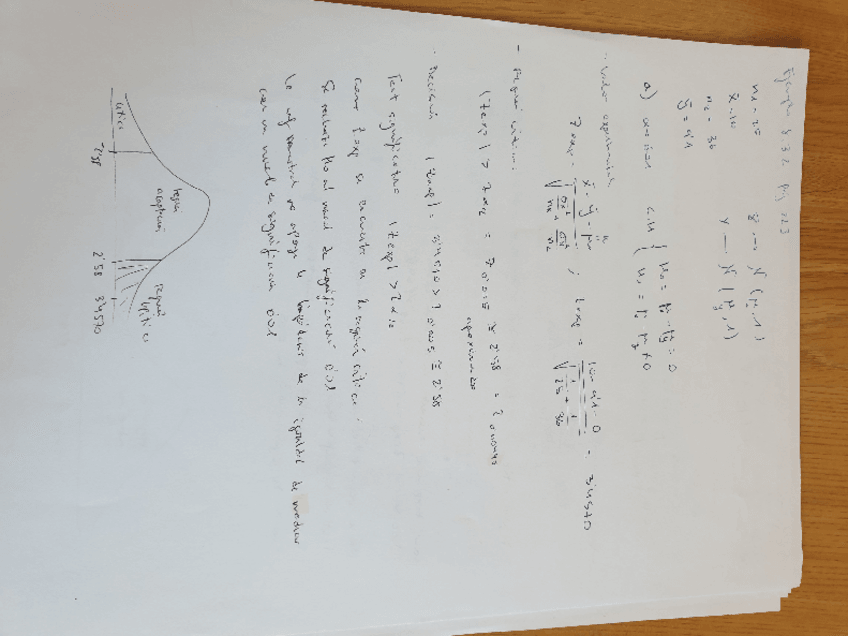 Ejemplo 8.3.2 Pág 223
n₁ = 25 x → N (μₓ, 1)
x̄ = 10 y → N (μ_y, 1)
n₂ = 30
ȳ = 9'1
a)
H₀ = μₓ - μ_y = 0
H₁ = μₓ - μ_y ≠ 0
- Valor experimental
Z exp = x̄ - ȳ - μ₀ / √(σₓ²/n₁ + σ_y²/n₂) ; Z exp = 10 - 9'1 - 0 / √(1/25 + 1/30) =
- Región crítica:
|Z exp| > Z α/2 = Z 0'005 ≅ 2'58
aproximado
- Decisión |Z exp| = > Z 0'005 ≅ 2'58
Test significativo |Z exp| > Z α/2
como Z exp se encuentra en la región crítica.
Se rechaza H₀ al nivel de significación 0'01
La inf muestral no apoya la hipótesis de la igualdad de medias
con un nivel de significación 0'01
región
aceptación
región
crítica
crítica
-2'58 2'58